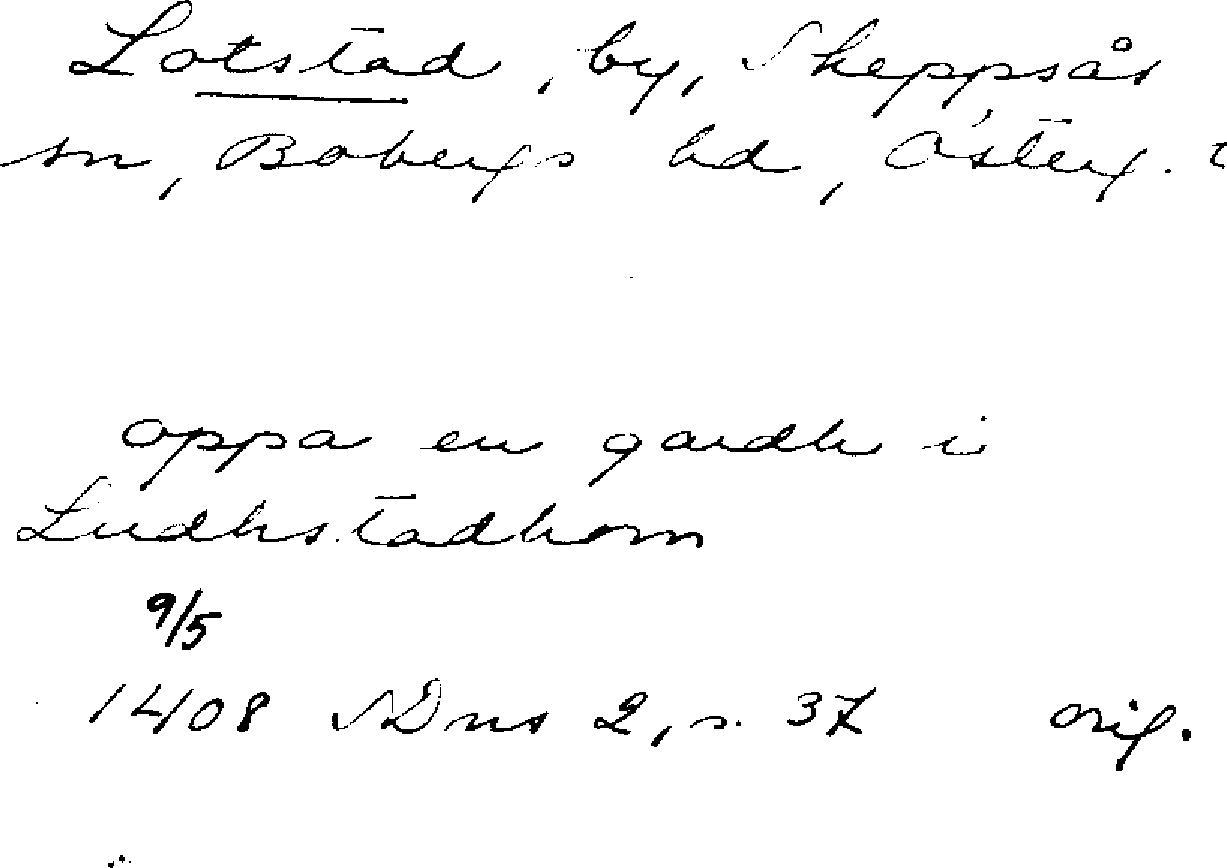 Lotstad, by, Skeppsås
sn, Bobergs hd, Österg.
oppa en gardh i
Ludhstadhom
9/5
1408 SDns 2, s. 37 orig.